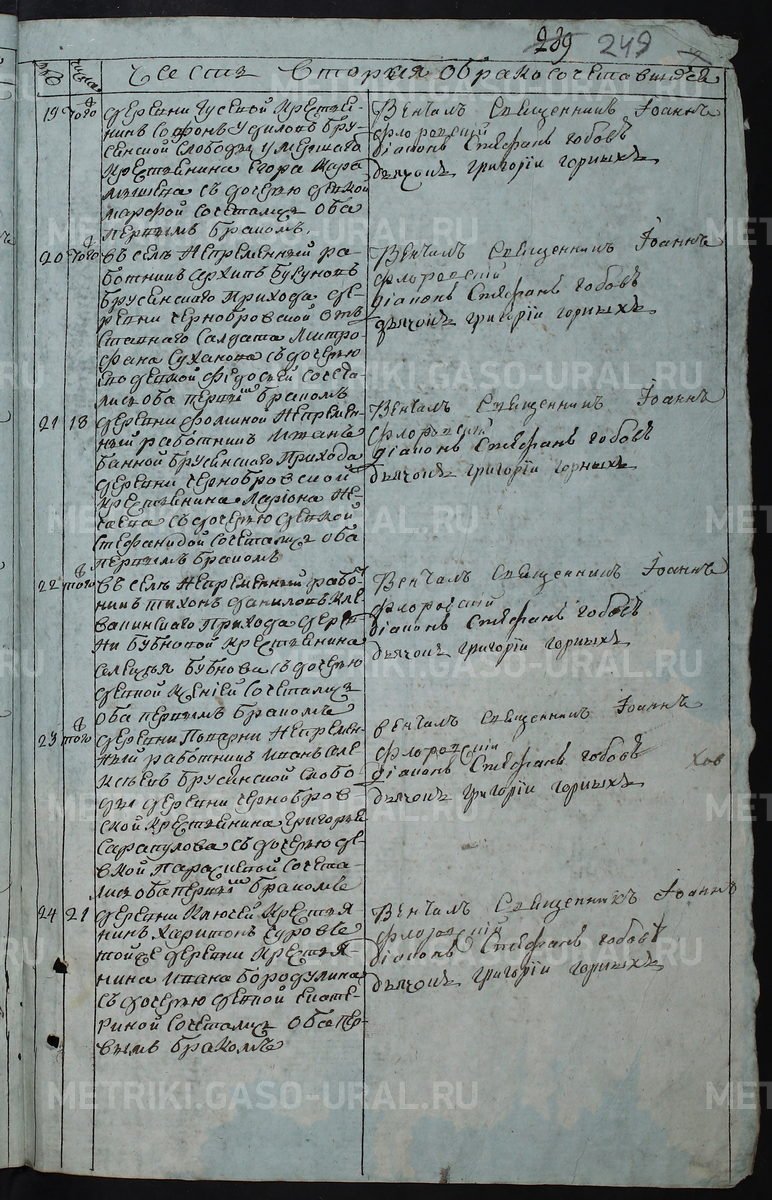 239 249
Часть вторая о бракосочетавшихся
19 Того деревни Гусевой крестья-
нинъ Софронъ Уфиловъ Бру-
сянской слободы умершаго
крестьянина Егора Кара
мышева съ дочерью девкой
Марфой сочетались оба
первымъ бракомъ.
Венчалъ священникъ Иоаннъ
Флоровский
диаконъ Стефанъ Гобовъ
дьячокъ григории горныхъ
20 Того въ селе непременный ра-
ботникъ Архипъ Бугуновъ
Брусянскаго прихода де-
ревни Чернобровской от-
ставнаго салдата Митро-
фана Суханова съ дочерью
ево девкой Федосьей сочета-
лись оба первымъ бракомъ
Венчалъ священникъ Иоаннъ
Флоровский
диаконъ Стефанъ Гобовъ
дьячокъ григории горныхъ
21 18 деревни Фоминой непремен-
ный работникъ Иванъ
Банной Брусянскаго прихода
деревни Чернобровской
крестьянина Лариона Не-
чаева съ дочерью девкой
Стефанидой сочетались оба
первымъ бракомъ
Венчалъ священникъ Иоаннъ
Флоровский
диаконъ Стефанъ гобовъ
дьячокъ григории горныхъ
22 того въ селе непременный рабо-
никъ Тихонъ Даниловъ Кле-
вакинскаго прихода дерев-
ни Бубновой крестьянина
Алексея Бубнова съ дочерью
девкой Ксенией сочетались
оба первымъ бракомъ
Венчалъ священникъ Иоаннъ
Флоровский
диаконъ Стефанъ гобовъ
дьячокъ григории горныхъ
23 того деревни Поварни непремен-
ный работникъ Иванъ Але-
ксеевъ Брусянской слобо
ды деревни Чернобров
ской крестьянина Григорья
Сарапулова съ дочерью де-
вкой Парасковей сочета-
лись оба первымъ бракомъ
венчалъ священникъ Иоаннъ
Флоровский
диаконъ Стефанъ гобовъ
дьячокъ григории горныхъ
24 21 деревни Ключей крестья
нинъ Харитонъ Суровъ
тойже деревни крестья
нина Ивана Бородулина
съ дочерью девкой Екате-
риной сочетались оба пер-
вымъ бракомъ
Венчалъ священникъ Иоаннъ
Флоровский
диаконъ Стефанъ гобовъ
дьячокъ григории горныхъ
METRIKI.GASO-URAL.RU